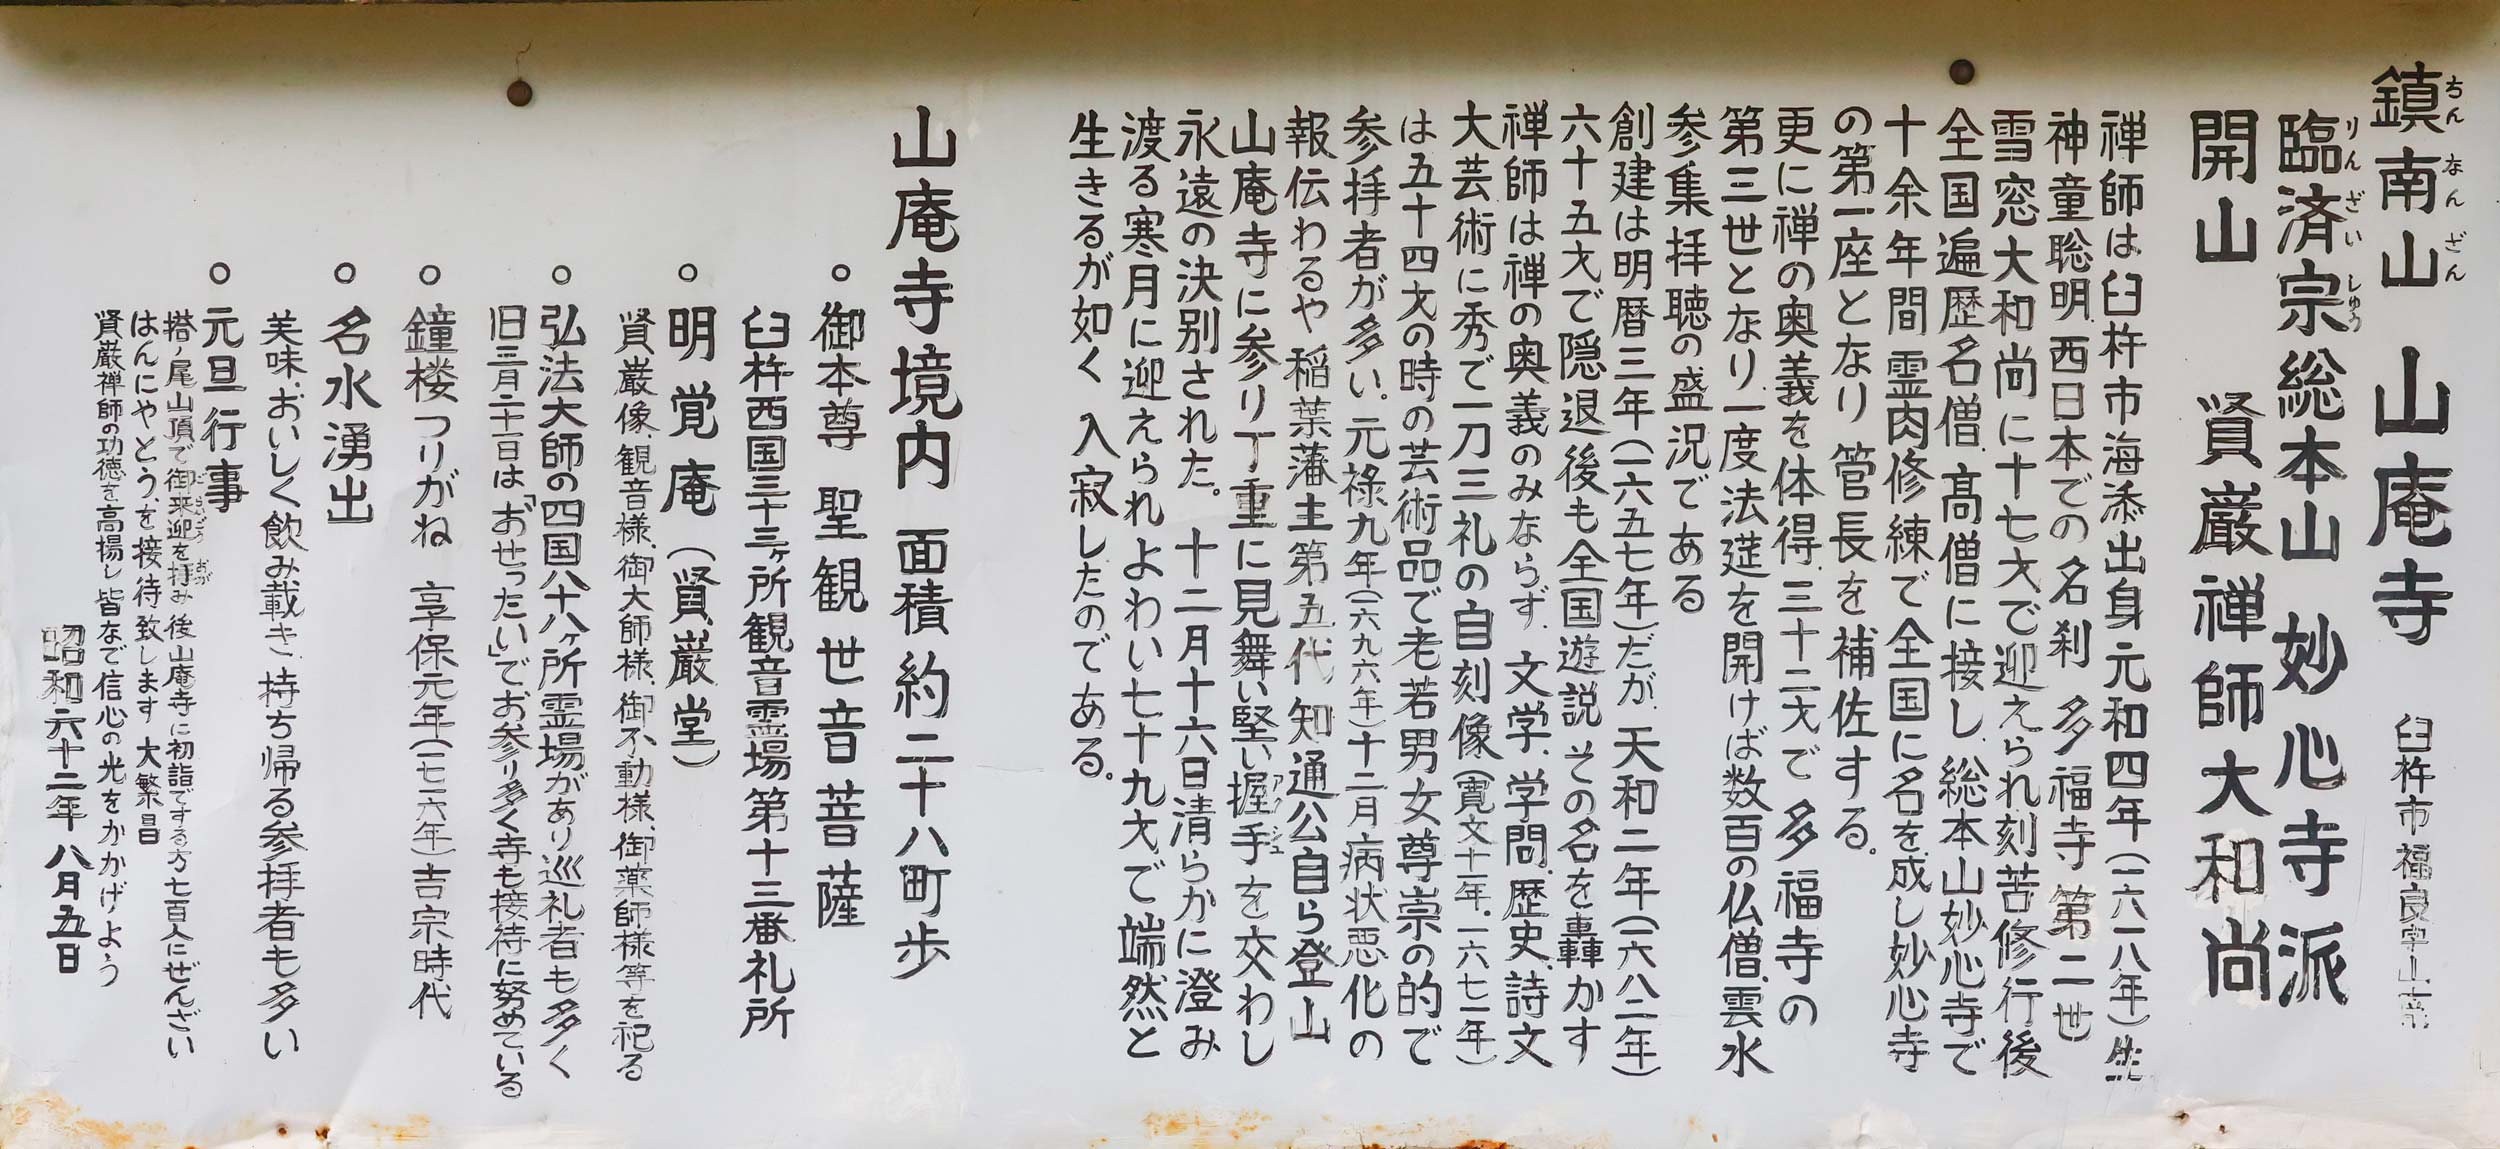 鎮南山 山庵寺 臼杵市福良字山庵
ちんなんざん
臨済宗総本山 妙心寺派
りんざいしゅう
開山 賢巌禅師大和尚
禅師は臼杵市海添出身元和四年(一六一八年)生
神童聡明、西日本での名刹 多福寺第二世
雪窓大和尚に十七才で迎えられ刻苦修行後
全国遍歴名僧、高僧に接し、総本山妙心寺で
十余年間霊肉修練で全国に名を成し妙心寺
の第一座となり管長を補佐する。
更に禅の奥義を体得、三十二才で多福寺の
第三世となり、一度法莚を開けば数百の仏僧、雲水
参集拝聴の盛況である
創建は明暦三年(一六五七年)だが、天和二年(一六八二年)
六十五才で隠退後も全国遊説その名を轟かす
禅師は禅の奥義のみならず、文学、学問、歴史、詩文
大芸術に秀で一刀三礼の自刻像(寛文十一年、一六七一年)
は五十四才の時の芸術品で老若男女尊崇の的で
参拝者が多い、元禄九年(一六九六年)十二月病状悪化の
報伝わるや稲葉藩主第五代知通公自ら登山
山庵寺に参り丁重に見舞い堅い握手を交わし
アクシュ
永遠の決別された。十二月十六日清らかに澄み
渡る寒月に迎えられよわい七十九才で端然と
生きるが如く入寂したのである。
山庵寺境内 面積約二十八町歩
○御本尊 聖観世音菩薩
臼杵西国三十三ヶ所観音霊場第十三番礼所
○明覚庵(賢巌堂)
賢巌像、観音様、御大師様、御不動様、御薬師様等を祀る
○弘法大師の四国八十八ヶ所霊場があり巡礼者も多く
旧三月二十一日は「おせったい」でお参り多く寺も接待に努めている
○鐘楼つりがね 享保元年(一七一六年)吉宗時代
○名水湧出
美味、おいしく飲み載き、持ち帰る参拝者も多い
○元旦行事
塔ノ尾山頂で御来迎を拝み後山庵寺に初詣でする方七百人にぜんざい
ごらいごう おが
はんにゃとう、を接待致します 大繁昌
賢巌禅師の功徳を高揚し皆なで信心の光をかかげよう
昭和六十二年八月五日